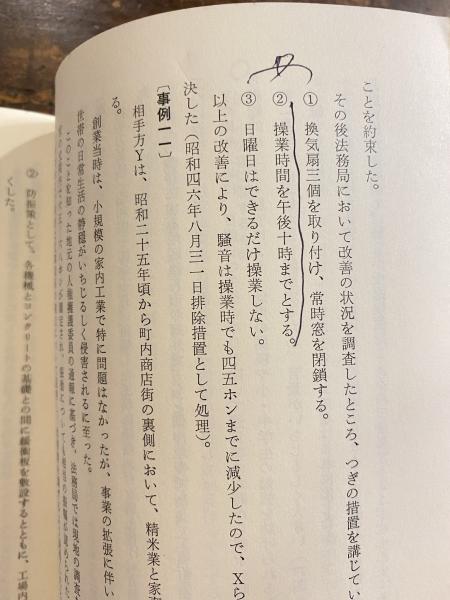 ことを約束した。
その後法務局において改善の状況を調査したところ、つぎの措置を講じてい
① 換気扇三個を取り付け、常時窓を閉鎖する。
② 操業時間を午後十時までとする。
③ 日曜日はできるだけ操業しない。
以上の改善により、騒音は操業時でも四五ホンまでに減少したので、Xら
決した(昭和四六年八月三一日排除措置として処理)。
〔事例一一〕
相手方Yは、昭和二十五年頃から町内商店街の裏側において、精米業と家
る。
創業当時は、小規模の家内工業で特に問題はなかったが、事業の拡張に伴い
世帯の日常生活の静穏がいちじるしく侵害されるに至った。
このことを知った地元の人権擁護委員の通報に基づき、法務局では現地の調査
② 防振策として、各機械とコンクリートの基礎との間に緩衝板を敷設するとともに、工場内
くした。